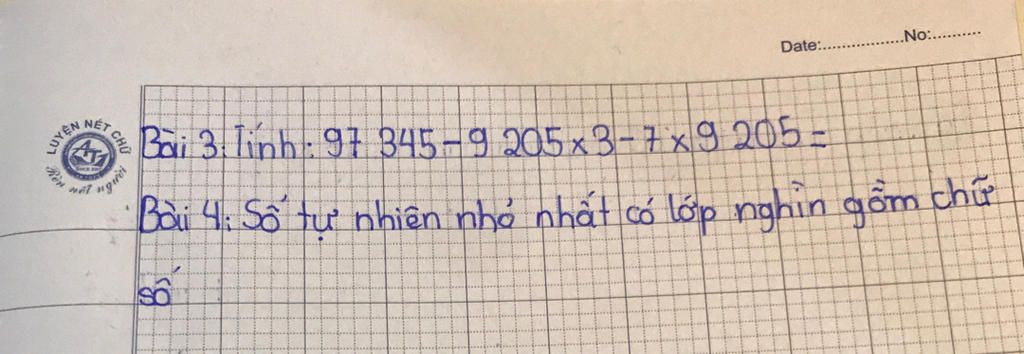 Date:.................No:..........
LUYỆN NÉT CHỮ
Rèn nết người
Bài 3: Tính: 97 345 - 9 205 x 3 - 7 x 9 205 =
Bài 4: Số tự nhiên nhỏ nhất có lớp nghìn gồm chữ
số